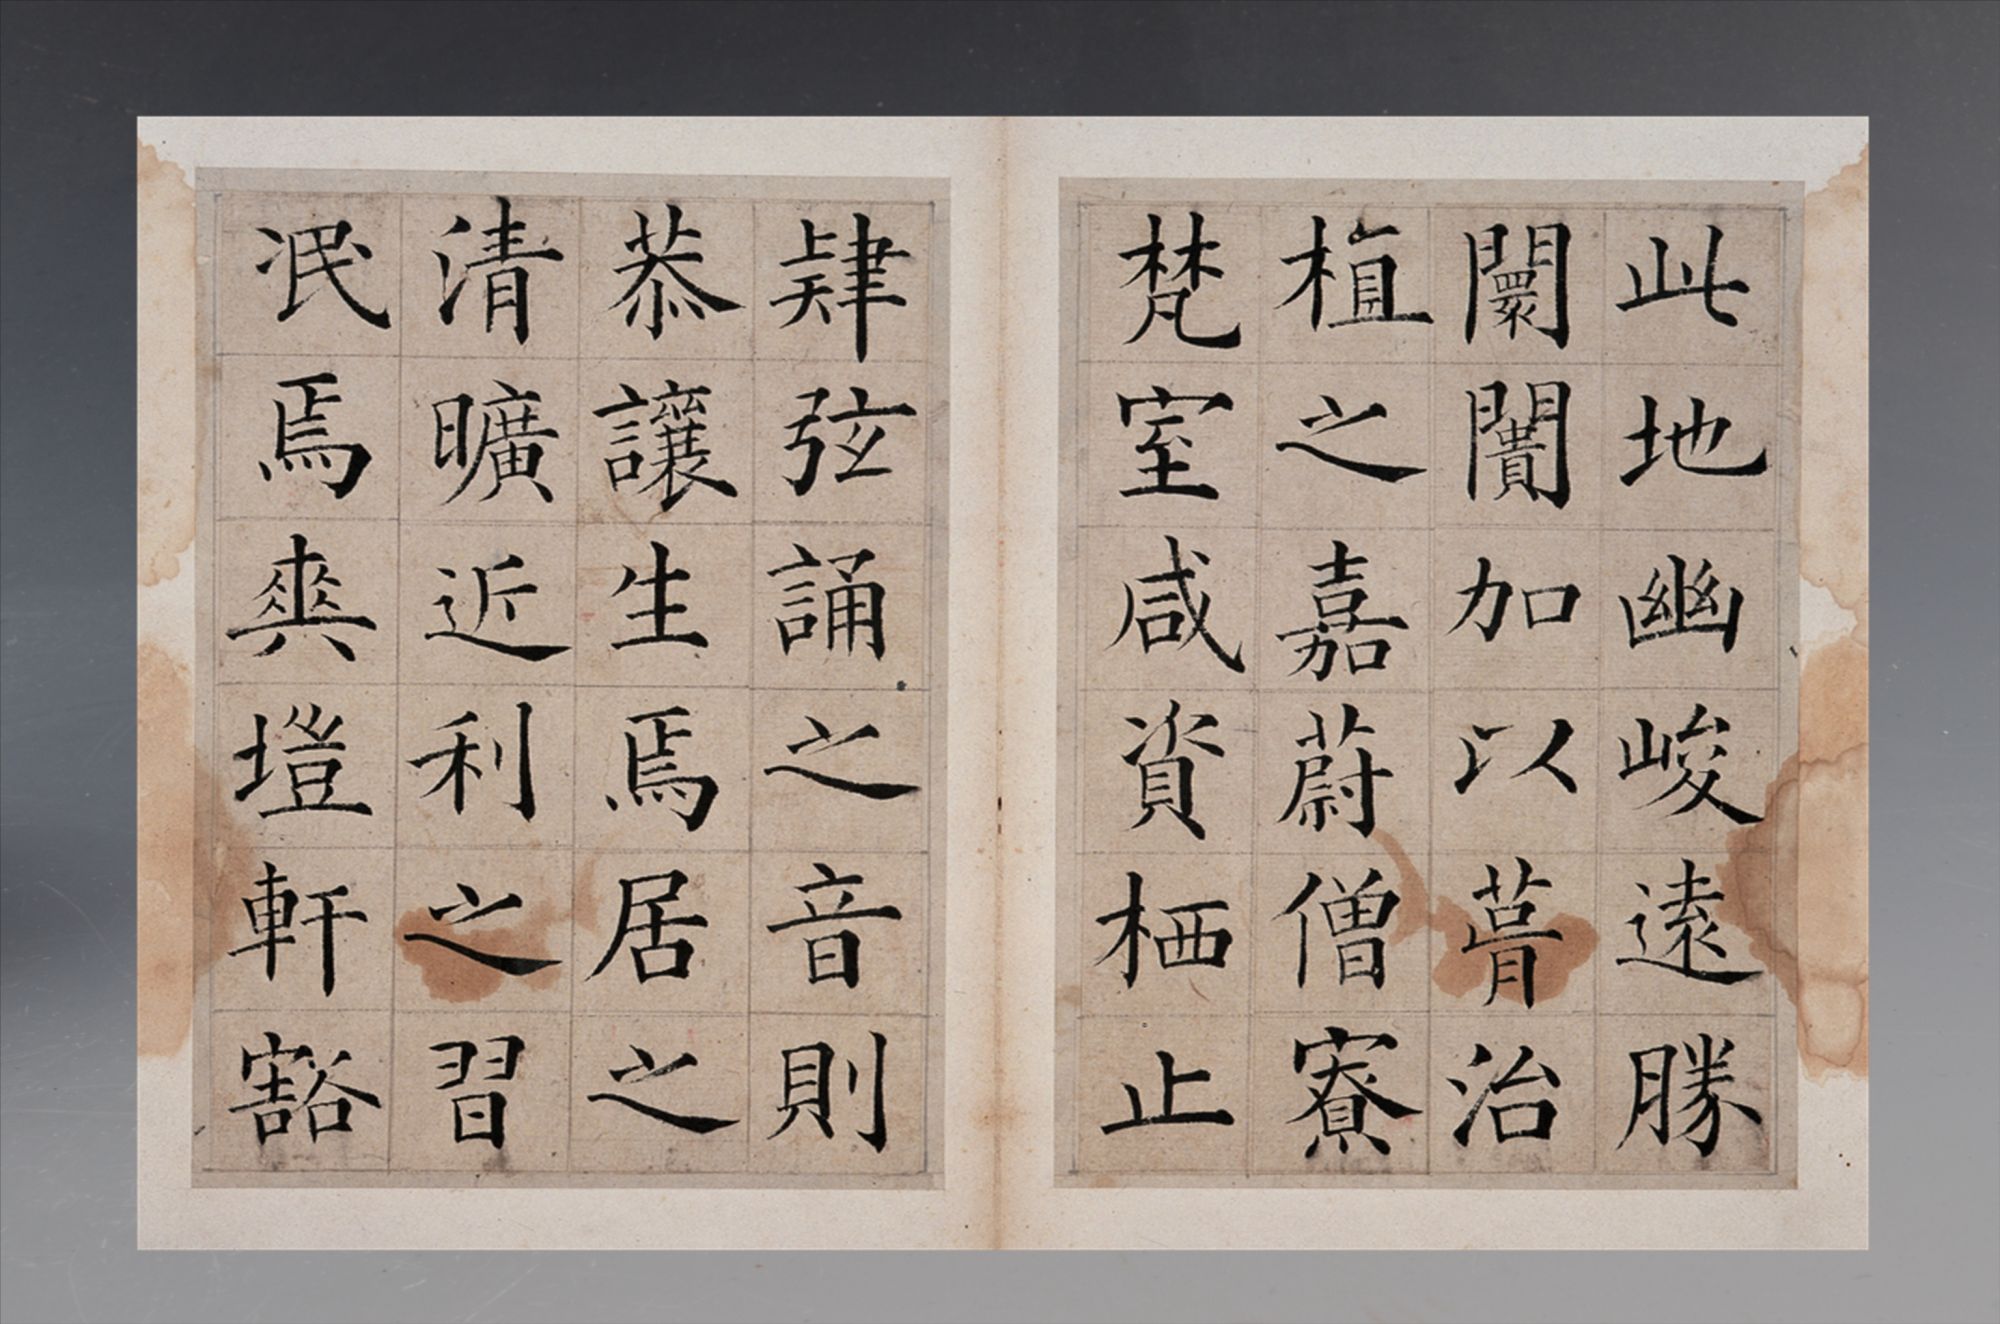 此地幽峻遠勝
闤闠加以葺治
植之嘉蔚僧寮
梵室咸資栖止
肄弦誦之音則
恭讓生焉居之
清曠近利之習
冺焉爽塏軒豁